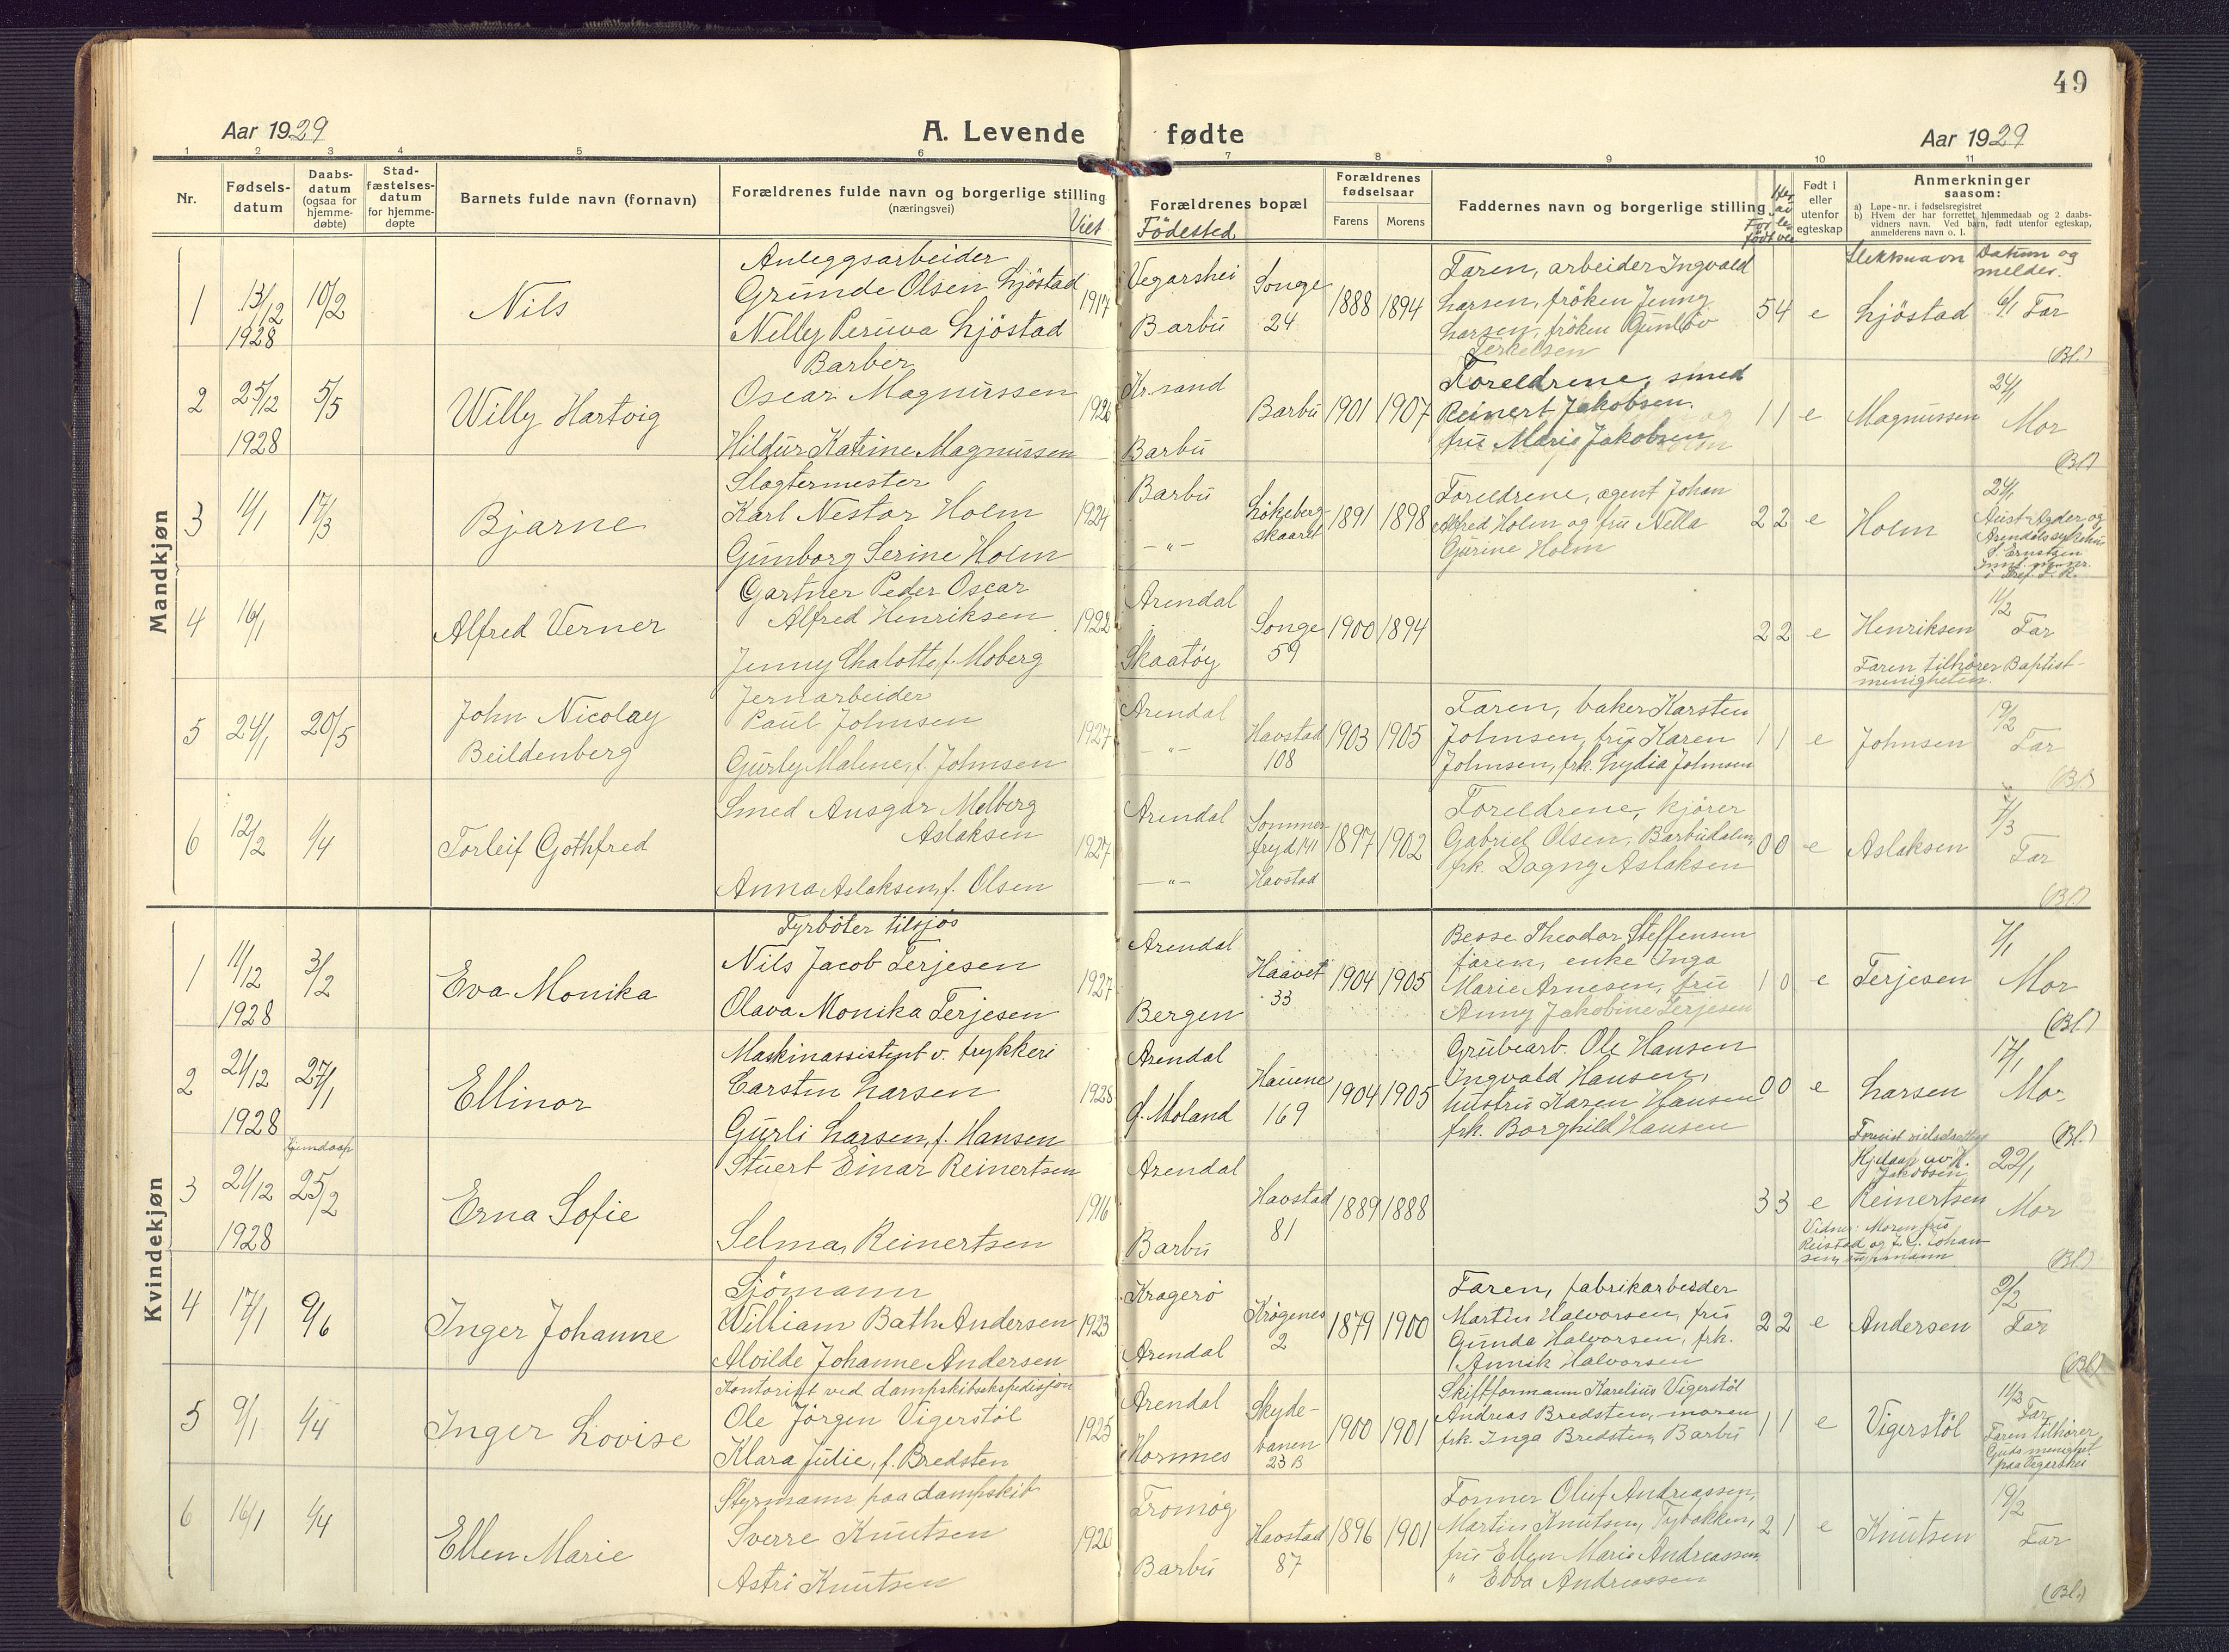 49
Aar 1929
A. Levende fødte
Aar 1929
1 2 3 4 5 6 7 8 9 10 11
Nr.
Fødsels-
datum
Daabs-
datum
(ogsaa for
hjemme-
døbte)
Stad-
fæstelses-
datum
for hjemme-
døpte
Barnets fulde navn (fornavn)
Forældrenes fulde navn og borgerlige stilling
(næringsvei)
Viet
Forældrenes bopæl
Födested
Forældrenes
fødselsaar
Farens Morens
Faddernes navn og borgerlige stilling
Født i
eller
utenfor
egteskap
Anmerkninger
saasom:
a) Løpe-nr. i fødselsregistret
b) Hvem der har forrettet hjemmedaab og 2 daabs-
vidners navn. Ved barn, født utenfor egteskap,
anmelderens navn o. l.
Slektsnavn Datum og
melder.
Mandkjøn
1 13/12 1928 10/2
Nils
Anleggsarbeider
Grunde Olsen Ljöstad
Nelly Peruva Ljöstad
1917
Vegarshei
Barbu
Songe
24
1888 1894
Faren, arbeider Ingvald
Larsen, fröken Jenny
Larsen, fröken Gunlöv
Terkelsen
5 4 e Ljöstad 6/1 Far
(Bl.)
2 25/12 1928 5/5
Willy Hartvig
Barber
Oscar Magnussen
Hildur Katrine Magnussen
1926
Kr.sand
Barbu
Barbu
1901 1907
Foreldrene, smed
Reinert Jakobsen,
fru Marie Jakobsen
1 1 e Magnussen 24/1
Mor
(Bl)
3 11/1 17/3
Bjarne
Slagtermester
Karl Nestor Holm
Gunborg Serine Holm
1924
Barbu
—"—
Lökeberg
skaaret
1891 1898
Foreldrene, agent Johan
Alfred Holm og fru Nella
Gurine Holm
2 2 e Holm
24/1
Aust-Agder og
Arendals sykehus
S. Ernstsen
4 16/1
Alfred Verner
Gartner Peder Oscar
Alfred Henriksen
Jenny Chalotte f. Moberg
1922
Arendal
Skaatöy
Songe
59
1900 1894
2 2 e Henriksen 11/2
Far
Faren tilhører Baptist-
menigheten.
5 24/1 20/5
John Nicolay
Beildenberg
Jernarbeider
Paul Johnsen
Gurly Malene, f. Johnsen
1927
Arendal
—"—
Havstad
108
1903 1905
Faren, baker Karsten
Johnsen, fru Karen
Johnsen, frk. Lydia Johnsen
1 1 e Johnsen 19/2
Far
(Bl)
6 12/2 1/4
Torleif Gothfred
Smed Ansgar Melberg
Aslaksen
Anna Aslaksen, f. Olsen
1927
Arendal
—"—
Sommer
fryd 141
Havstad
1897 1902
Foreldrene, kjører
Gabriel Olsen, Barbudalen,
frk. Dagny Aslaksen
0 0 e Aslaksen 7/3
Far
(Bl.)
Kvindekjøn
1 11/12 1928 3/2
Eva Monika
Fyrböter tilsjøs
Nils Jacob Terjesen
Olava Monika Terjesen
1927
Arendal
Bergen
Haavet
33
1904 1905
Besse Theodor Steffensen
faren, enke Inga
Marie Arnesen, fru
Anny Jakobine Terjesen
1 0 e Terjesen 7/1
Mor
(Bl.)
2 21/12 1928 27/1
Ellinor
Maskinassistent v. trykkeri
Carsten Larsen
Gurli Larsen, f. Hansen
1928
Arendal
Ø. Moland
Hauene
169
1904 1905
Grubearb. Ole Hansen
Ingvald Hansen,
hustru Karen Hansen
frk. Borghild Hansen
0 0 e Larsen 17/1
Mor
(Bl.)
3 21/12 1928 Hjemdaap 25/2
Erna Sofie
Stuert Einar Reinertsen
Selma Reinertsen
1916
Arendal
Barbu
Havstad
81
1889 1888
3 3 e
Hjdaap av K.
Jakobsen
Reinertsen
22/1
Mor
Vidner: Moren, fru
Reistad og
(Bl.)
4 17/1 9/6
Inger Johanne
Sjömann
William Bath Andersen
Alvilde Johanne Andersen
1923
Kragerö
Arendal
Krögenes
2
1879 1900
Faren, fabrikarbeider
Martin Halvorsen, fru
Gunda Halvorsen, frk.
Annik Halvorsen
2 2 e Andersen 9/2
Far
(Bl)
5 9/1 1/4
Inger Lovise
Kontorist ved dampskibsekspedisjon
Ole Jörgen Vigerstöl
Klara Julie, f. Bredsten
1925
Arendal
Hornnes
Skyde-
banen
23 B
1900 1901
Skifformann Karelius Vigerstöl
Andreas Bredsten, moren
frk. Inga Bredsten, Barbu
1 1 e Vigerstöl
11/3
Far
Faren tilhører
Guds menighet
paa Vegarshei
6 16/1 1/4
Ellen Marie
Styrmann paa dampskib
Sverre Knutsen
Astri Knutsen
1920
Tromøy
Barbu
Havstad
87
1896 1901
Former Oluf Andreassen,
Martin Knutsen, Tybakken,
fru Ellen Marie Andreassen
" Ebba Andreassen
2 1 e Knutsen 19/2
Far
(Bl.)